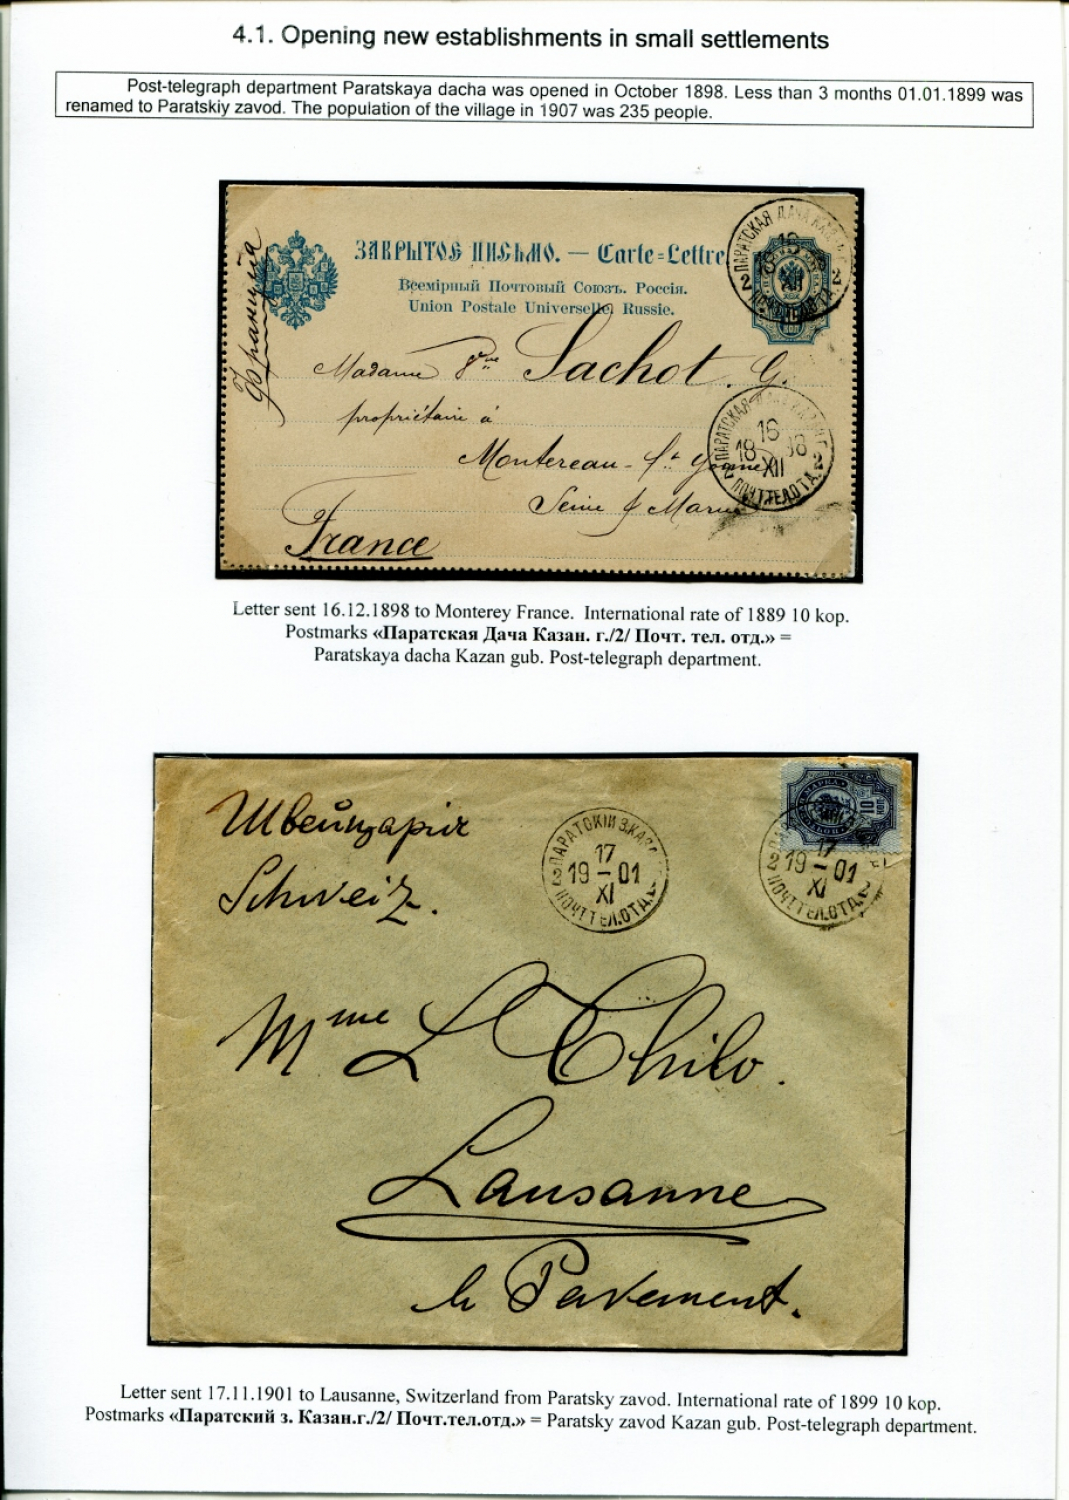 4.1. Opening new establishments in small settlements
Post-telegraph department Paratskaya dacha was opened in October 1898. Less than 3 months 01.01.1899 was
renamed to Paratskiy zavod. The population of the village in 1907 was 235 people.
Франція
ЗАКРЫТОЕ ПИСЬМО. — Carte-Lettre
Всемірный Почтовый Союзъ. Россія.
Union Postale Universelle. Russie.
ПАРАТСКАЯ ДАЧА
2 2
XII
ПОЧТ.ТЕЛ.ОТД.
Madame Sachot. G.
propriétaire à
Montereau - Yonne
Seine & Marne
France
ПАРАТСКАЯ
16
18 98
XII
2 ПОЧТ.ТЕЛ.ОТД. 2
Letter sent 16.12.1898 to Monterey France. International rate of 1889 10 kop.
Postmarks «Паратская Дача Казан. г./2/ Почт. тел. отд.» =
Paratskaya dacha Kazan gub. Post-telegraph department.
Швейцарія
Schweiz.
ПАРАТСКІЙ З.КАЗ
17
19 – 01
XI
2 ПОЧТ.ТЕЛ.ОТД. 2
10 КОП
17
19 – 01
XI
2 ПОЧТ.ТЕЛ.ОТД. 2
Mme L Chilo.
Lausanne
le Pavement.
Letter sent 17.11.1901 to Lausanne, Switzerland from Paratsky zavod. International rate of 1899 10 kop.
Postmarks «Паратский з. Казан.г./2/ Почт.тел.отд.» = Paratsky zavod Kazan gub. Post-telegraph department.